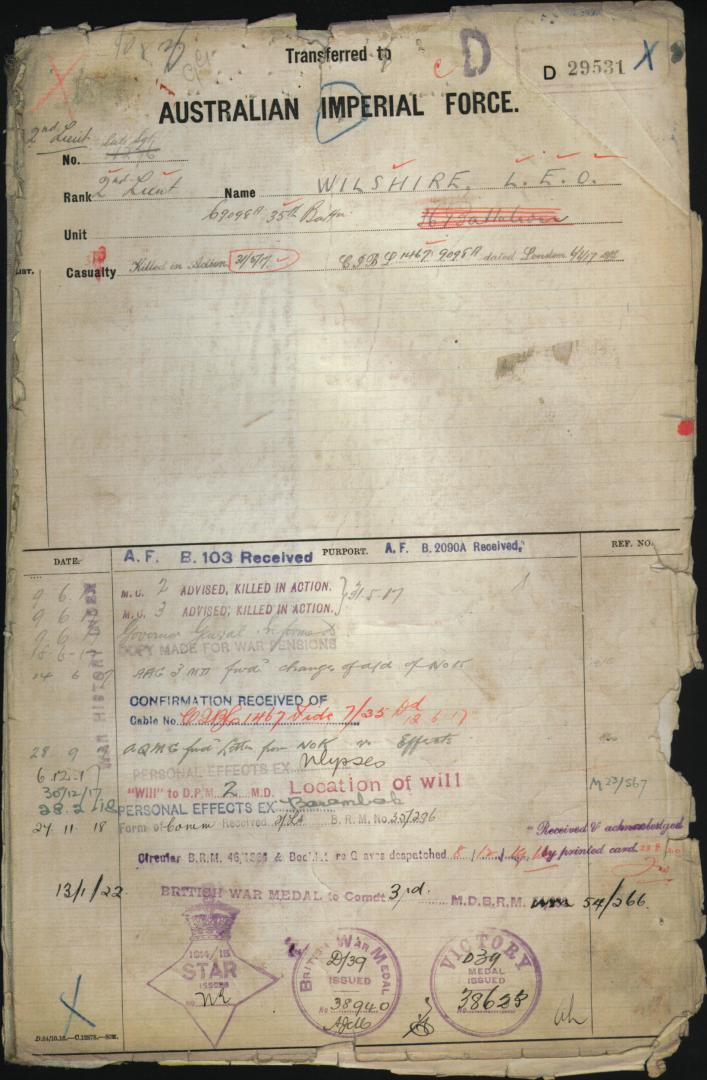 Transferred to
D
D 29531 X
AUSTRALIAN IMPERIAL FORCE.
2nd Lieut
No.
Rank 2nd Lieut Name WILSHIRE, L. E. O.
Unit 35th Battn
Casualty Killed in Action 31/5/17 1467 9098A dated London
LIST.
DATE. A. F. B. 103 Received PURPORT. A. F. B. 2090A Received. REF. NO.
WAR HISTORY INDEX
9 6 17 M. C. 2 ADVISED, KILLED IN ACTION. } 31.5.17
9 6 17 M. C. 3 ADVISED, KILLED IN ACTION.
9 6 17 Governor General Informed
18-6-17 COPY MADE FOR WAR PENSIONS
14 6 AAG 3 MD fwds change of add of NoK
CONFIRMATION RECEIVED OF
Cable No. 1467 Fide 7/35 Dd
12 6 17
28 9 AQMG fwds Letter from NoK re Effects
6.12.17 PERSONAL EFFECTS EX Ulysses
30/12/17 "Will" to D.P.M. 2 M.D. Location of will M 23/567
28.2.18 PERSONAL EFFECTS EX Barambah
27 11 18 Form of Comm Received B. R. M. No. 35/236
"Received & acknowledged
Circular B.R.M. 46/ & Booklet re Graves despatched 8/12/19 by printed card
13/1/22 BRITISH WAR MEDAL to Comdt 3rd. M.D.B.R.M. 54/266.
1914/15
STAR
ISSUED
No
BRITISH WAR MEDAL
D/39
ISSUED
No 38940
VICTORY
D39
MEDAL
ISSUED
No 38623
X
D.84/10.16.—C.12878.—50M.